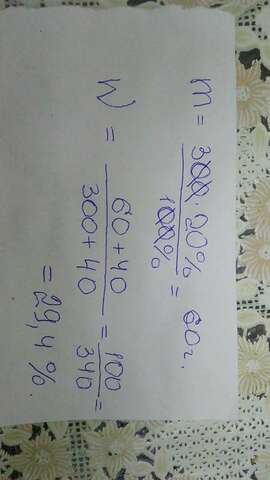 m = 300 · 20% / 100% = 60г.
W = 60 + 40 / 300 + 40 = 100 / 340 =
= 29,4%.